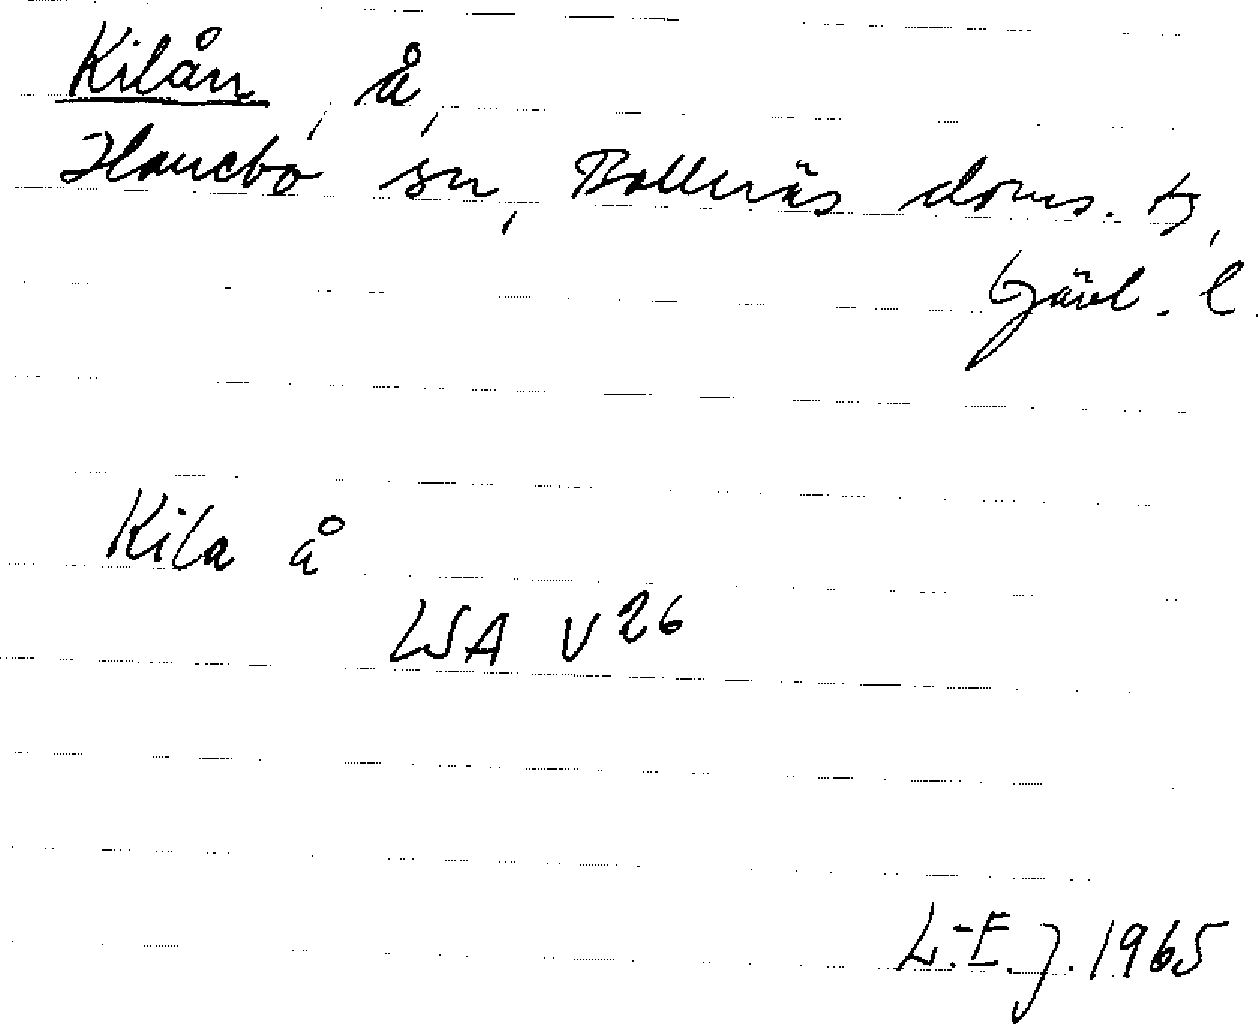 Kilån, å,
Hanebo sn, Bollnäs doms. ts,
Gävl. l.
Kila å
LSA V26
L.-E. J. 1965